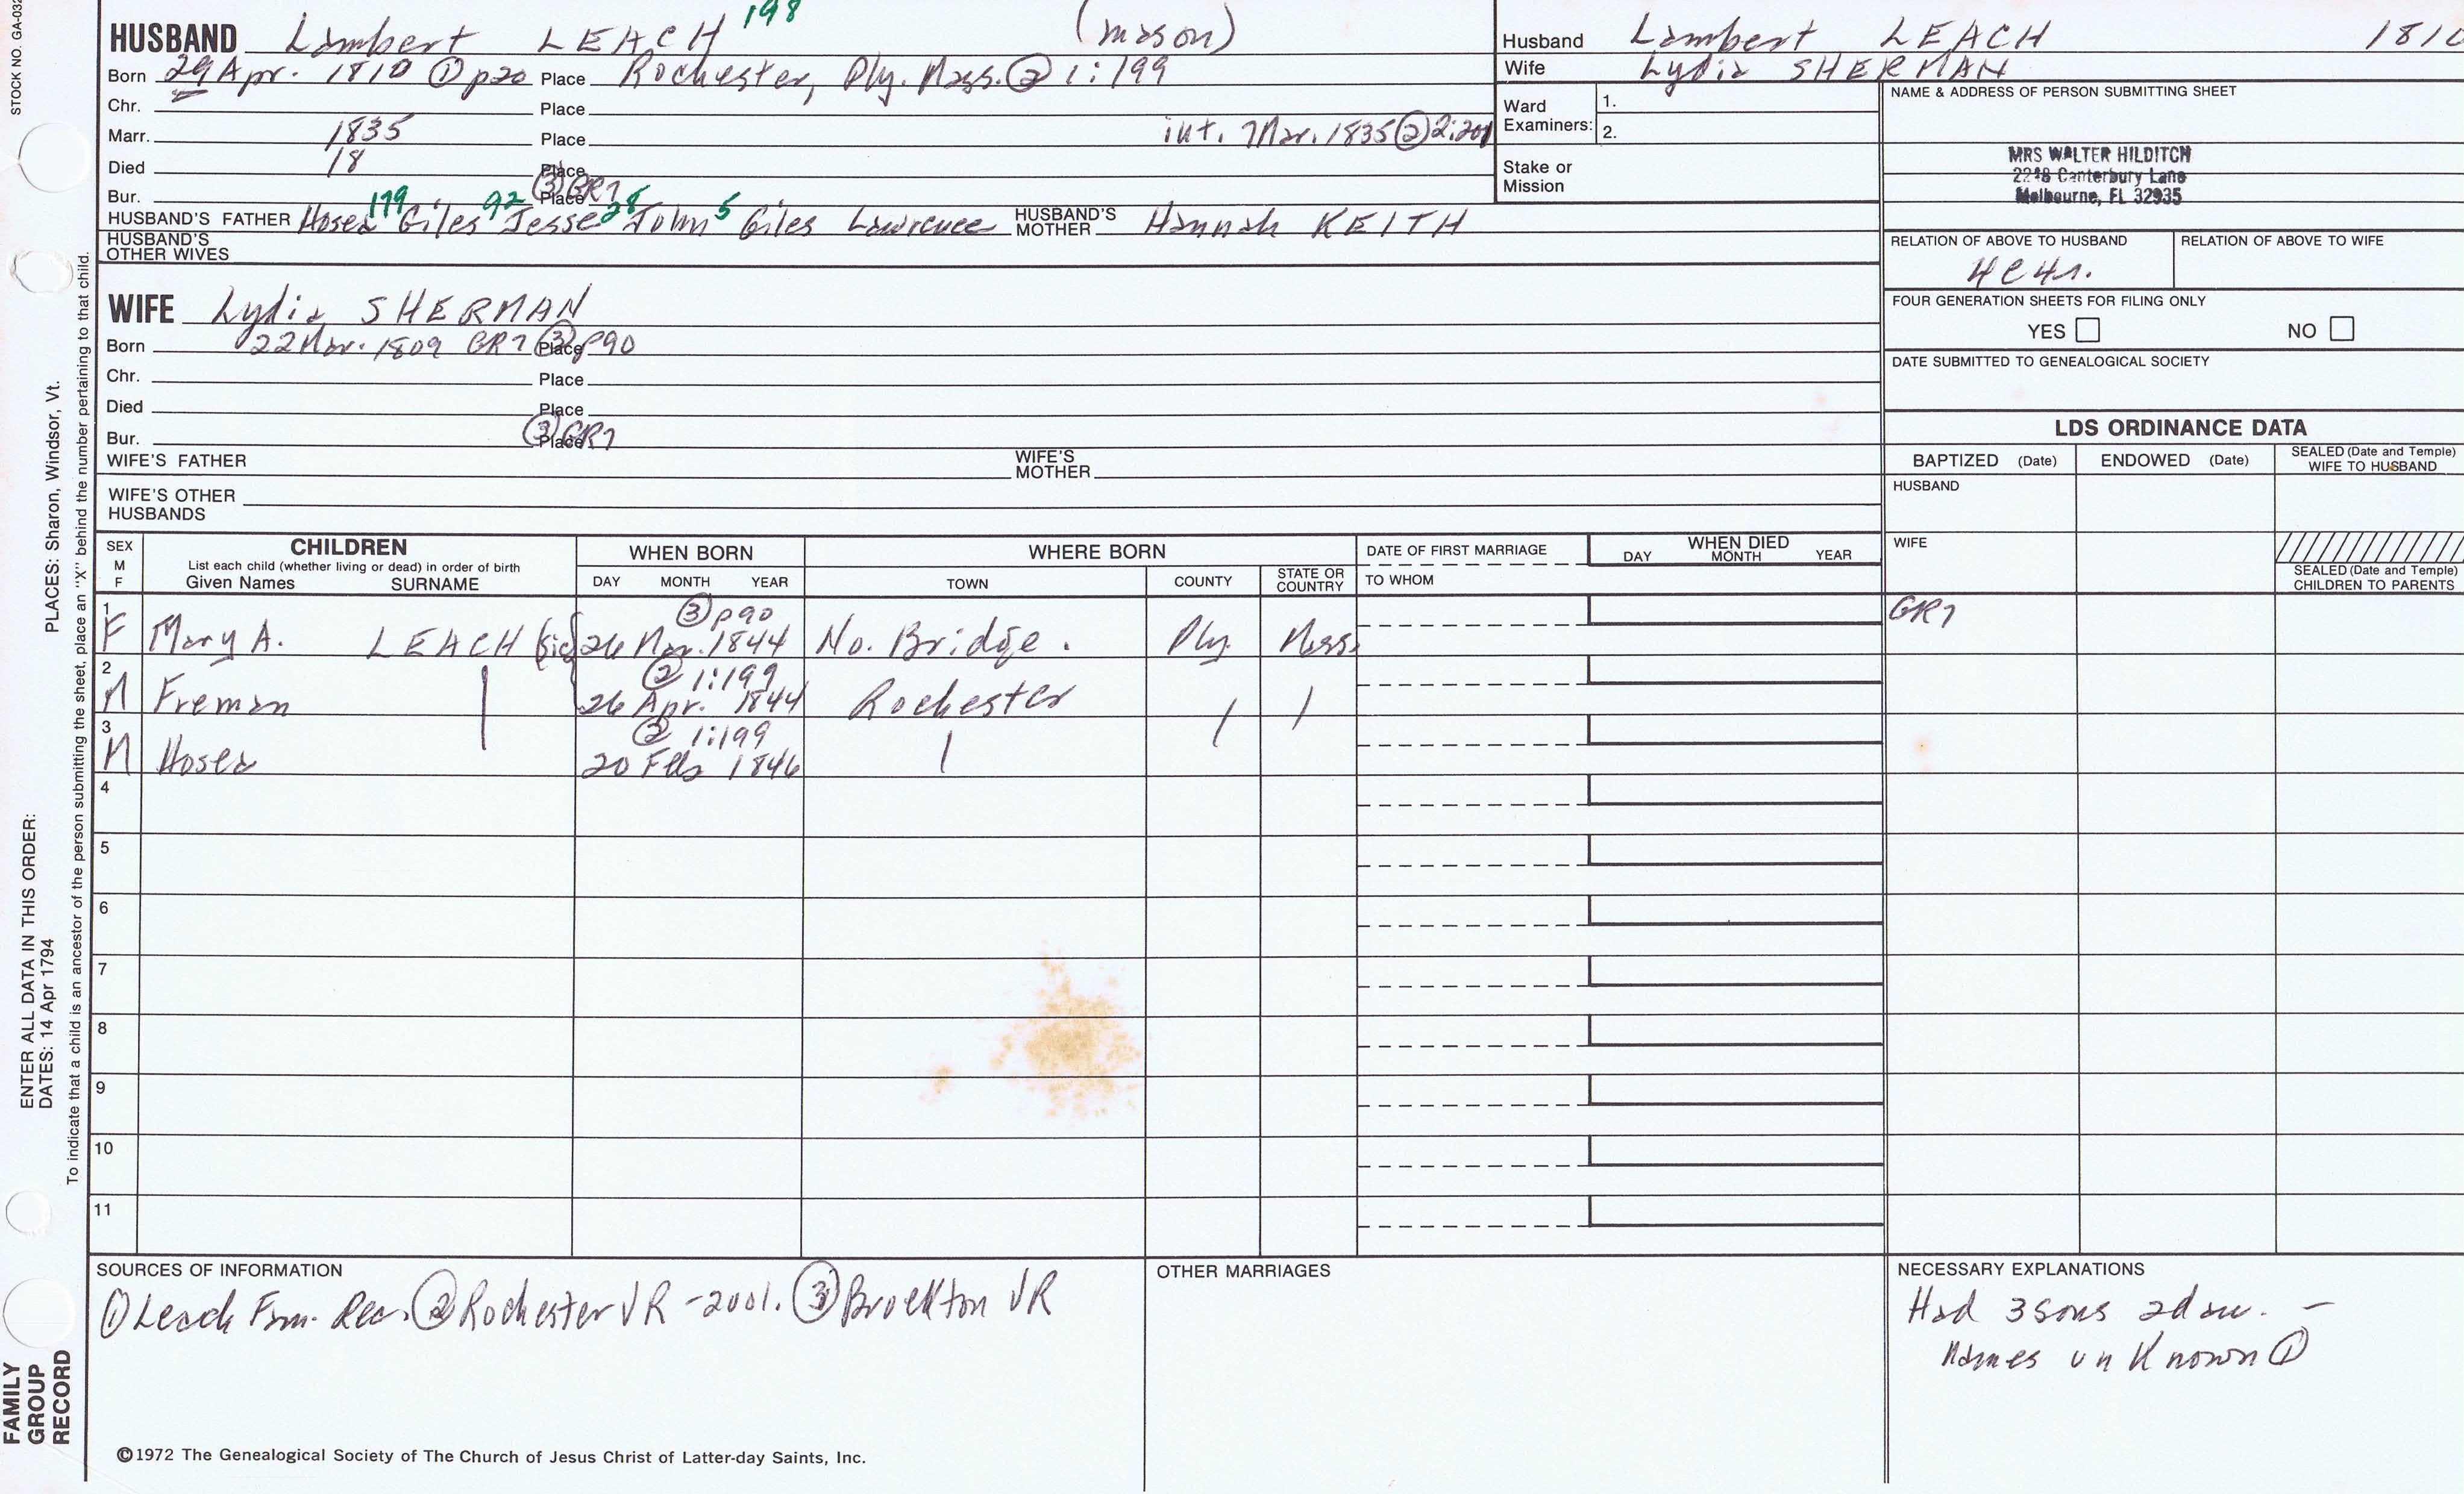 STOCK NO. GA-032
HUSBAND Lambert LEACH 198 (mason)
Born 29 Apr. 1810 ① p20 Place Rochester, Ply. Mass. ② 1:199
Chr. Place
Marr. 1835 Place int. Mar. 1835 ② 2:201
Died 18 Place
Bur. Place ③ GR7
HUSBAND'S FATHER Hosea 179 Giles 92 Jesse 28 John 5 Giles Lawrence HUSBAND'S MOTHER Hannah KEITH
HUSBAND'S OTHER WIVES
WIFE Lydia SHERMAN
Born 22 Mar. 1809 GR7 ③ Place p90
Chr. Place
Died Place
Bur. Place ③ GR7
WIFE'S FATHER WIFE'S MOTHER
WIFE'S OTHER HUSBANDS
Husband Lambert LEACH 1810
Wife Lydia SHERMAN
Ward Examiners: 1.
2.
Stake or Mission
NAME & ADDRESS OF PERSON SUBMITTING SHEET
MRS WALTER HILDITCH
2248 Canterbury Lane
Melbourne, FL 32935
RELATION OF ABOVE TO HUSBAND RELATION OF ABOVE TO WIFE
4c4r.
FOUR GENERATION SHEETS FOR FILING ONLY
YES NO
DATE SUBMITTED TO GENEALOGICAL SOCIETY
LDS ORDINANCE DATA
BAPTIZED (Date) ENDOWED (Date) SEALED (Date and Temple) WIFE TO HUSBAND
HUSBAND
WIFE
SEALED (Date and Temple) CHILDREN TO PARENTS
SEX M F
CHILDREN
List each child (whether living or dead) in order of birth
Given Names SURNAME
WHEN BORN
DAY MONTH YEAR
WHERE BORN
TOWN COUNTY STATE OR COUNTRY
DATE OF FIRST MARRIAGE
TO WHOM
WHEN DIED
DAY MONTH YEAR
③ p90
1 F Mary A. LEACH (sic) 26 Mar. 1844 No. Bridge. Ply. Mass. GR7
② 1:199
2 M Freman 26 Apr. 1844 Rochester
② 1:199
3 M Hosea 20 Feb 1846
4
5
6
7
8
9
10
11
SOURCES OF INFORMATION
① Leach Fam. Rec. ② Rochester VR - 2 vol. ③ Brockton VR
OTHER MARRIAGES
NECESSARY EXPLANATIONS
Had 3 sons 2 dau. —
Names unknown ①
©1972 The Genealogical Society of The Church of Jesus Christ of Latter-day Saints, Inc.
FAMILY GROUP RECORD
ENTER ALL DATA IN THIS ORDER:
DATES: 14 Apr 1794
PLACES: Sharon, Windsor, Vt.
To indicate that a child is an ancestor of the person submitting the sheet, place an "X" behind the number pertaining to that child.